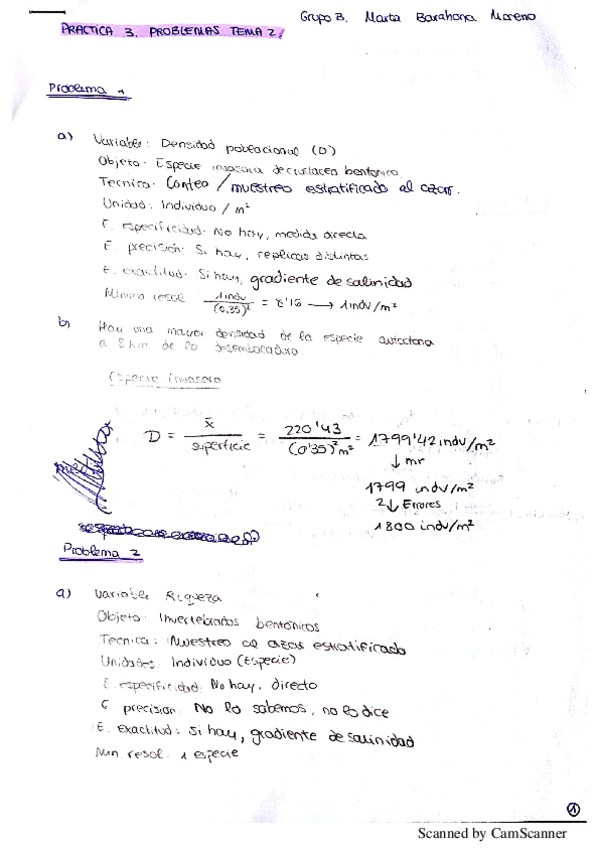 Grupo B. Marta Barahona Moreno
PRACTICA 3. PROBLEMAS TEMA 2.
Problema 1
a) Variable: Densidad poblacional (D)
Objeto: Especie invasora de crustaceo bentónico.
Tecnica: Conteo / muestreo estratificado al azar.
Unidad: Individuo / m²
E. especificidad: No hay, medida directa
E. precisión: Si hay, replicas distintas
E. exactitud: Si hay, gradiente de salinidad
Minimo resol 1 indv / (0,35)² = 8'16 → 1 indv/m²
b) Hay una mayor densidad de la especie autoctona
a 8 km de la desembocadura
Especie invasora
D = x̄ / superficie = 220'43 / (0'35)² m² = 1799'42 indv/m²
↓ mr
1799 indv/m²
2↓ Errores
1800 indv/m²
Problema 2
a) Variable Riqueza
Objeto: Invertebrados bentónicos
Tecnica: Muestreo al azar estratificado
Unidades: Individuo (Especie)
E. especificidad: No hay, directo
E precision: No lo sabemos, no lo dice
E. exactitud: Si hay, gradiente de salinidad
Min resol: 1 especie
1
Scanned by CamScanner